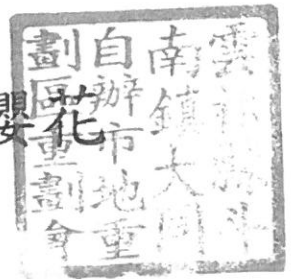 雲林縣斗
南鎮大同
自辦市地重
劃區重劃會
花